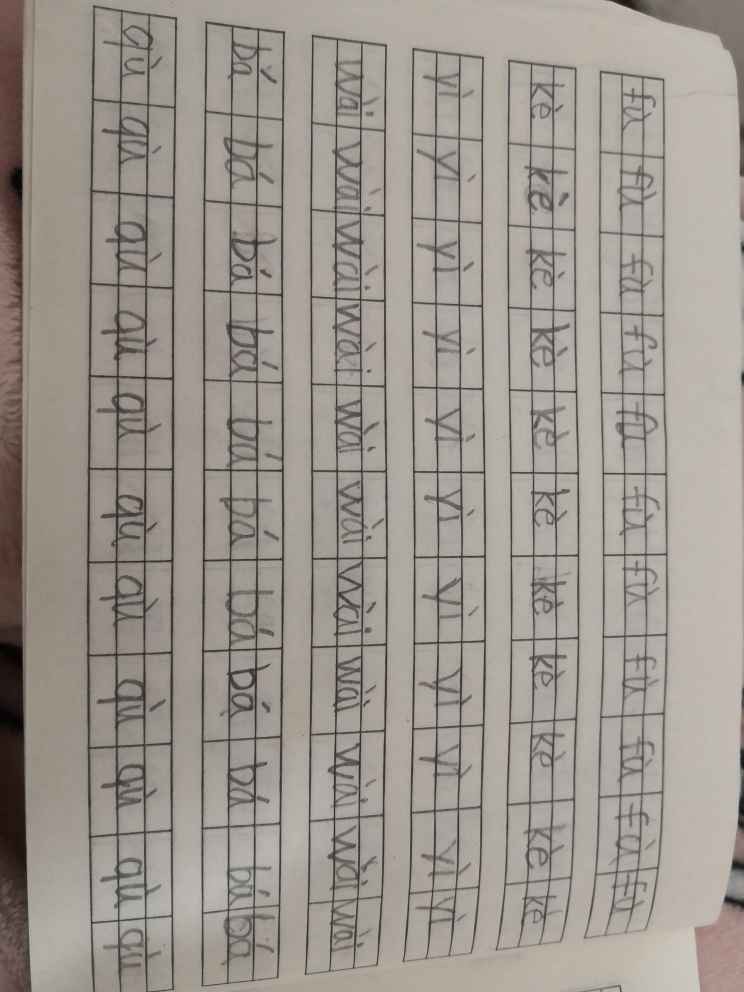 fù fù fù fù fù fù fù fù fù fù fù
kè kè kè kè kè kè kè kè kè kè kè
yì yì yì yì yì yì yì yì yì yì yì
wài wài wài wài wài wài wài wài wài wài wài
bá bá bá bá bá bá bá bá bá bá bá
qù qù qù qù qù qù qù qù qù qù qù